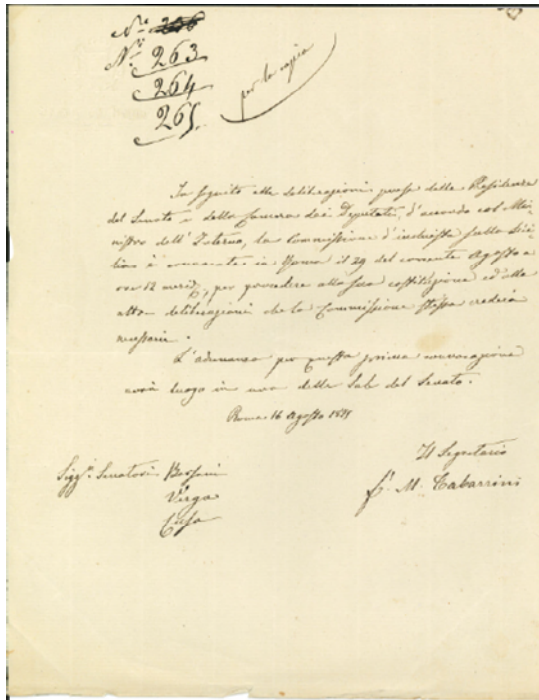 N.º 256
N.i 263
264
265.
per la copia
In seguito alle deliberazioni prese dalla Presidenza
del Senato e della Camera dei Deputati, d'accordo col Mi-
nistro dell'Interno, la Commissione d'inchiesta sulla Sici-
lia è convocata in Roma il 29 del corrente Agosto a
ore 12 merid., per procedere alla sua costituzione ed alle
altre deliberazioni che la Commissione stessa crederà
necessarie.
L'adunanza per questa prima convocazione
avrà luogo in una delle Sale del Senato.
Roma 16 Agosto 1875
Il Segretario
f. M. Tabarrini
Sigg.i Senatori Borsani
Verga
Cusa